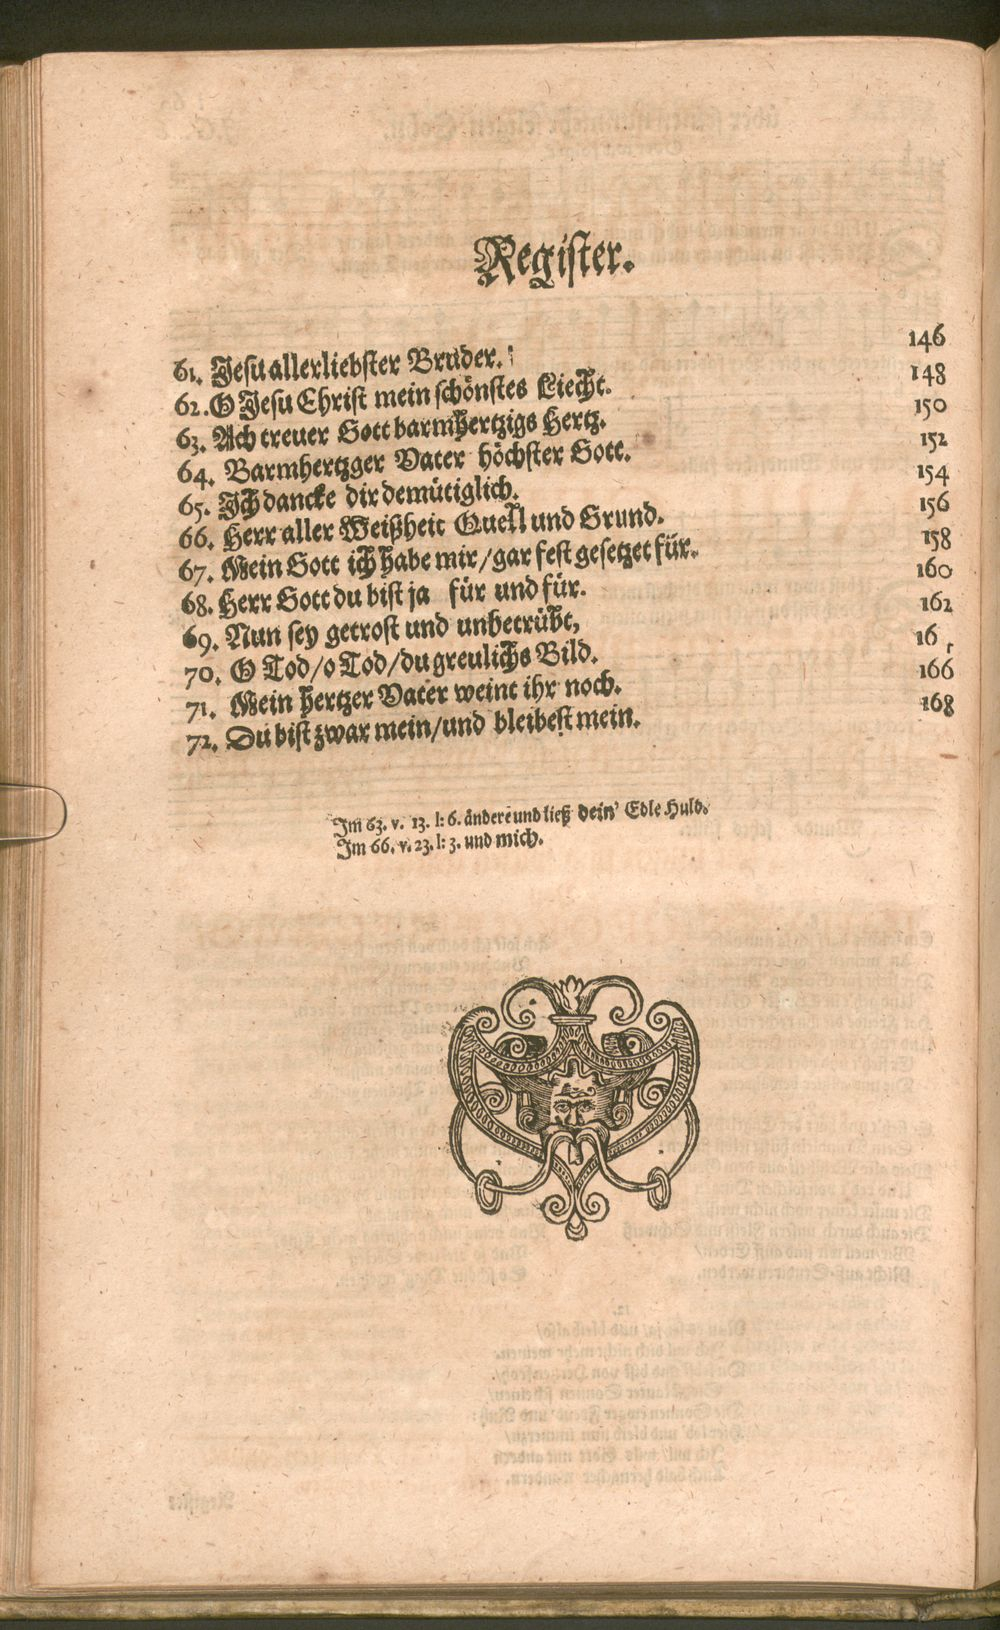 Register.
61. Jesu allerliebster Bruder. 146
62. O Jesu Christ mein schönstes Liecht. 148
63. Ach treuer Gott barmhertzigs Hertz. 150
64. Barmhertzger Vater höchster Gott. 152
65. Ich dancke dir demütiglich. 154
66. Herr aller Weißheit Quell und Grund. 156
67. Mein Gott ich habe mir/gar fest gesetzet für. 158
68. Herr Gott du bist ja für und für. 160
69. Nun sey getrost und unbetrübt, 162
70. O Tod/o Tod/du greulichs Bild. 16
71. Mein hertzer Vater weint ihr noch. 166
72. Du bist zwar mein/und bleibest mein. 168
Im 63. v. 13. l: 6. ändere und ließ dein' Edle Huld.
Im 66. v. 23. l: 3. und mich.